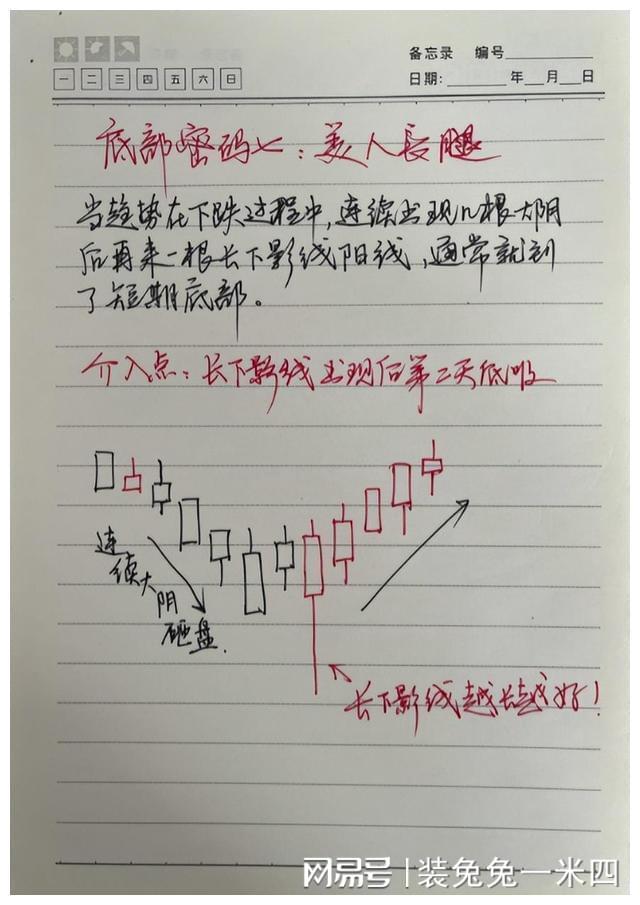 备忘录 编号
一 二 三 四 五 六 日
日期: 年 月 日
底部密码七：美人長腿
当趋势在下跌过程中，连续出现几根大阴
后再来一根长下影线阳线，通常就到
了短期底部。
介入点：长下影线出现后第二天低吸
连续大阴砸盘.
长下影线越长越好！
网易号 | 装兔兔一米四